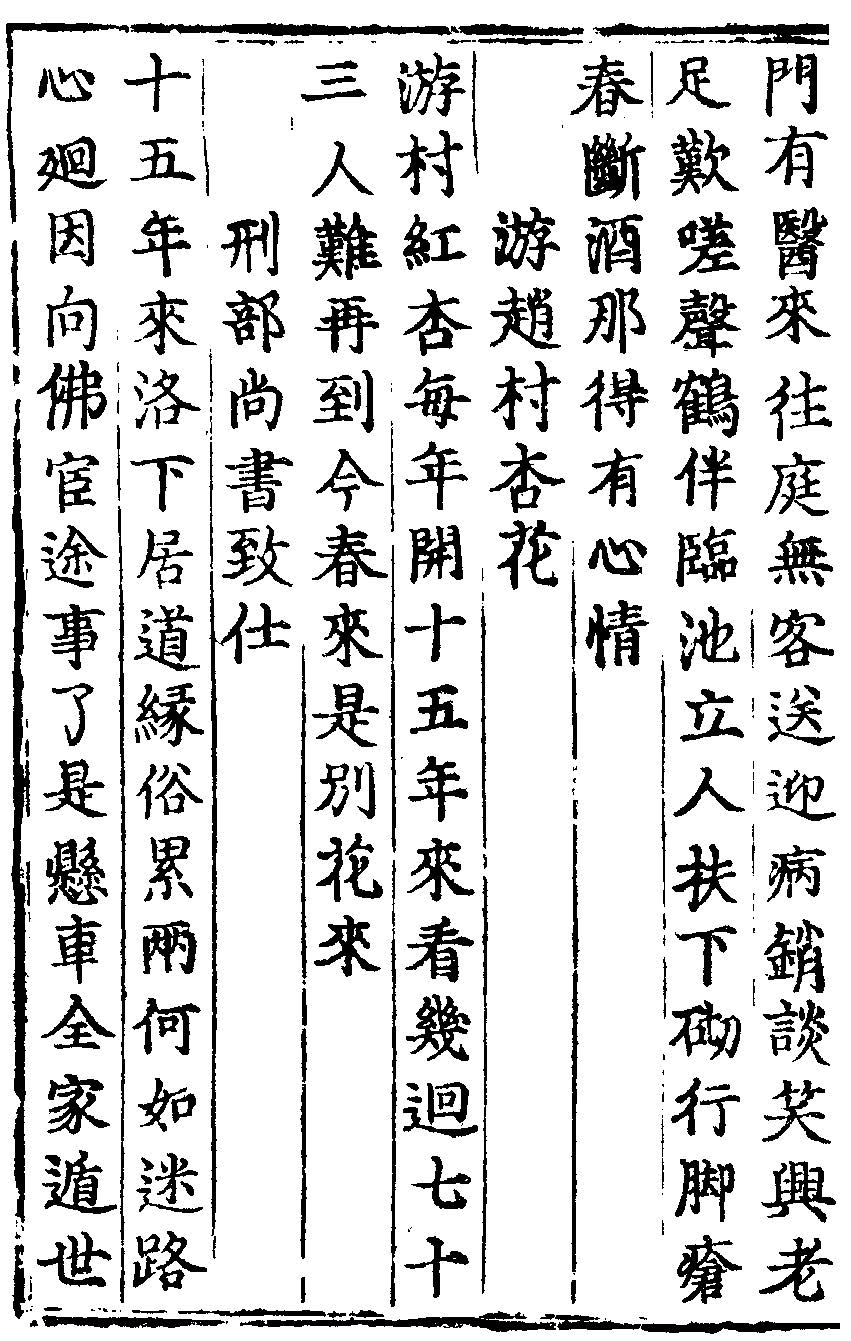 門有醫來往庭無客送迎病銷談笑興老
足歎嗟聲鶴伴臨池立人扶下砌行脚瘡
春斷酒那得有心情
游趙村杏花
游村紅杏每年開十五年來看幾迴七十
三人難再到今春來是別花來
刑部尚書致仕
十五年來洛下居道緣俗累兩何如迷路
心廻因向佛宦途事了是懸車全家遁世